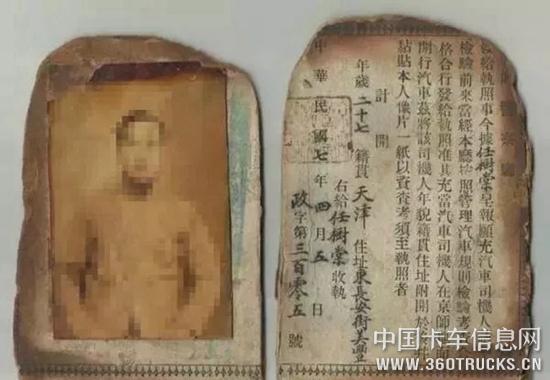 發給執照事今據任樹棠呈報願充汽車司機人
檢驗前來當經本廳按照管理汽車規則檢驗考
格合行發給執照准其充當汽車司機人在京師
開行汽車茲將該司機人年貌籍貫住址附開於
黏貼本人像片一紙以資查考須至執照者
計開
年歲二十七 籍貫天津 住址東長安街美豐
右給任樹棠收執
中華民國七年四月五日
政字第三百零五號
中国卡车信息网
WWW.360TRUCKS.CN